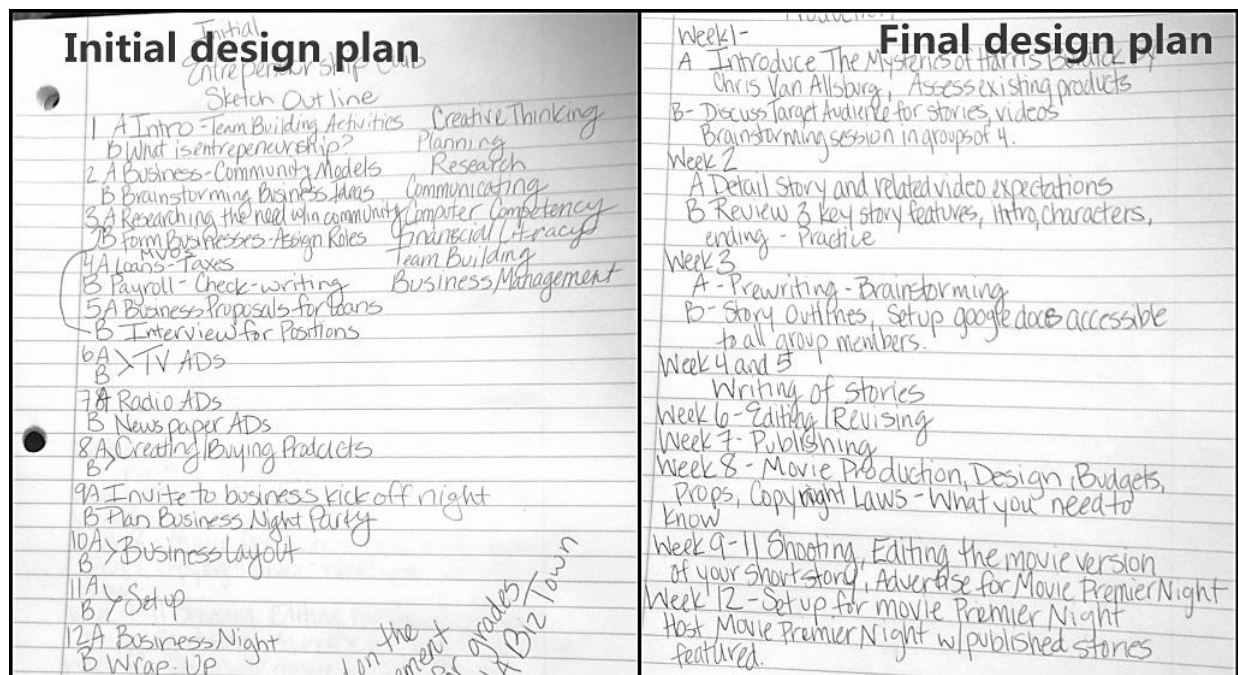 Initial design plan
Initial
Entrepeneurship Club
Sketch Outline
1 A Intro - Team Building Activities Creative Thinking
B What is entrepeneurship? Planning
2 A Business - Community Models Research
B Brainstorming Business Ideas Communicating
3 A Researching the need w/in community Computer Competency
B Form Businesses - Assign Roles Financial Literacy
4A Loans - Taxes Team Building
B Payroll - Check-writing Business Management
5A Business Proposals for loans
B Interview for Positions
6A
B > TV ADs
7A Radio ADs
B Newspaper ADs
8A
B > Creating/Buying Products
9A Invite to business kick off night
B Plan Business Night Party
10A
B > Business Layout
11A
B > Set up
12A Business Night
B Wrap-Up
on the
grades
Biz Town
Final design plan
Production
Week 1-
A Introduce The Mysteries of Harris Burdick by
Chris Van Allsburg, Assess existing products
B- Discuss Target Audience for stories, videos
Brainstorming session in groups of 4.
Week 2
A Detail story and related video expectations
B Review 3 key story features, intro, characters,
ending - Practice
Week 3
A - Prewriting - Brainstorming
B- Story Outlines, Setup google docs accessible
to all group members.
Week 4 and 5
Writing of Stories
Week 6 - Editing/Revising
Week 7 - Publishing
Week 8 - Movie Production, Design, Budgets,
Props, Copyright Laws - What you need to
know
Week 9-11 Shooting, Editing the movie version
of your short story, Advertise for Movie Premier Night
Week 12 - Set up for movie Premier Night
Host Movie Premier Night w/published stories
featured.